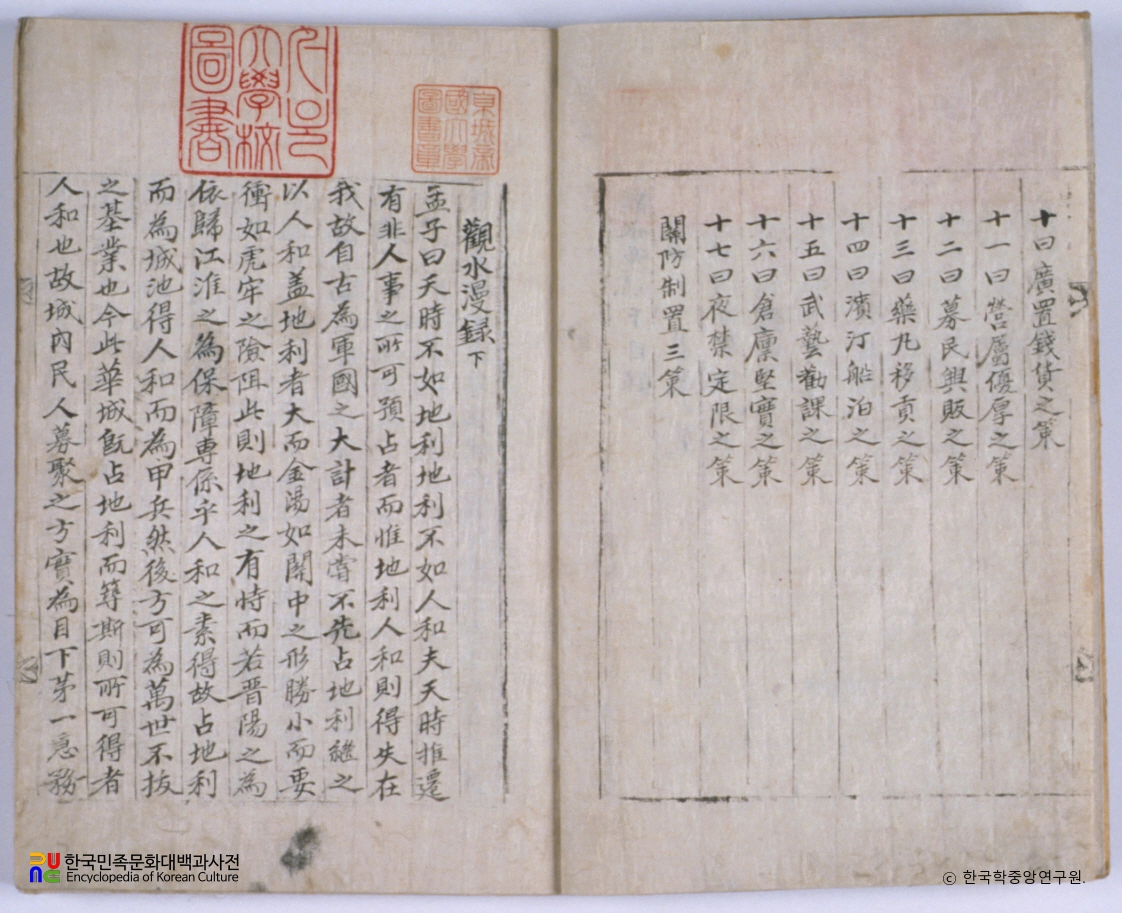 十曰廣置錢貨之策
十一曰營屬優厚之策
十二曰募民興販之策
十三曰藥丸移貢之策
十四曰濱汀船泊之策
十五曰武藝勸課之策
十六曰倉廩堅實之策
十七曰夜禁定限之策
關防制置三策
觀水漫録下
孟子曰天時不如地利地利不如人和夫天時推遷
有非人事之所可預占者而惟地利人和則得失在
我故自古為軍國之大計者未嘗不先占地利繼之
以人和盖地利者大而金湯如關中之形勝小而要
衝如虎牢之險阻此則地利之有恃而若晋陽之為
依歸江淮之為保障專係乎人和之素得故占地利
而為城池得人和而為甲兵然後方可為萬世不拔
之基業也今此華城旣占地利而築斯則所可得者
人和也故城內民人募聚之方實為目下苐一急務
大學校
圖書
京城帝
國大學
圖書章
한국민족문화대백과사전
Encyclopedia of Korean Culture
© 한국학중앙연구원.